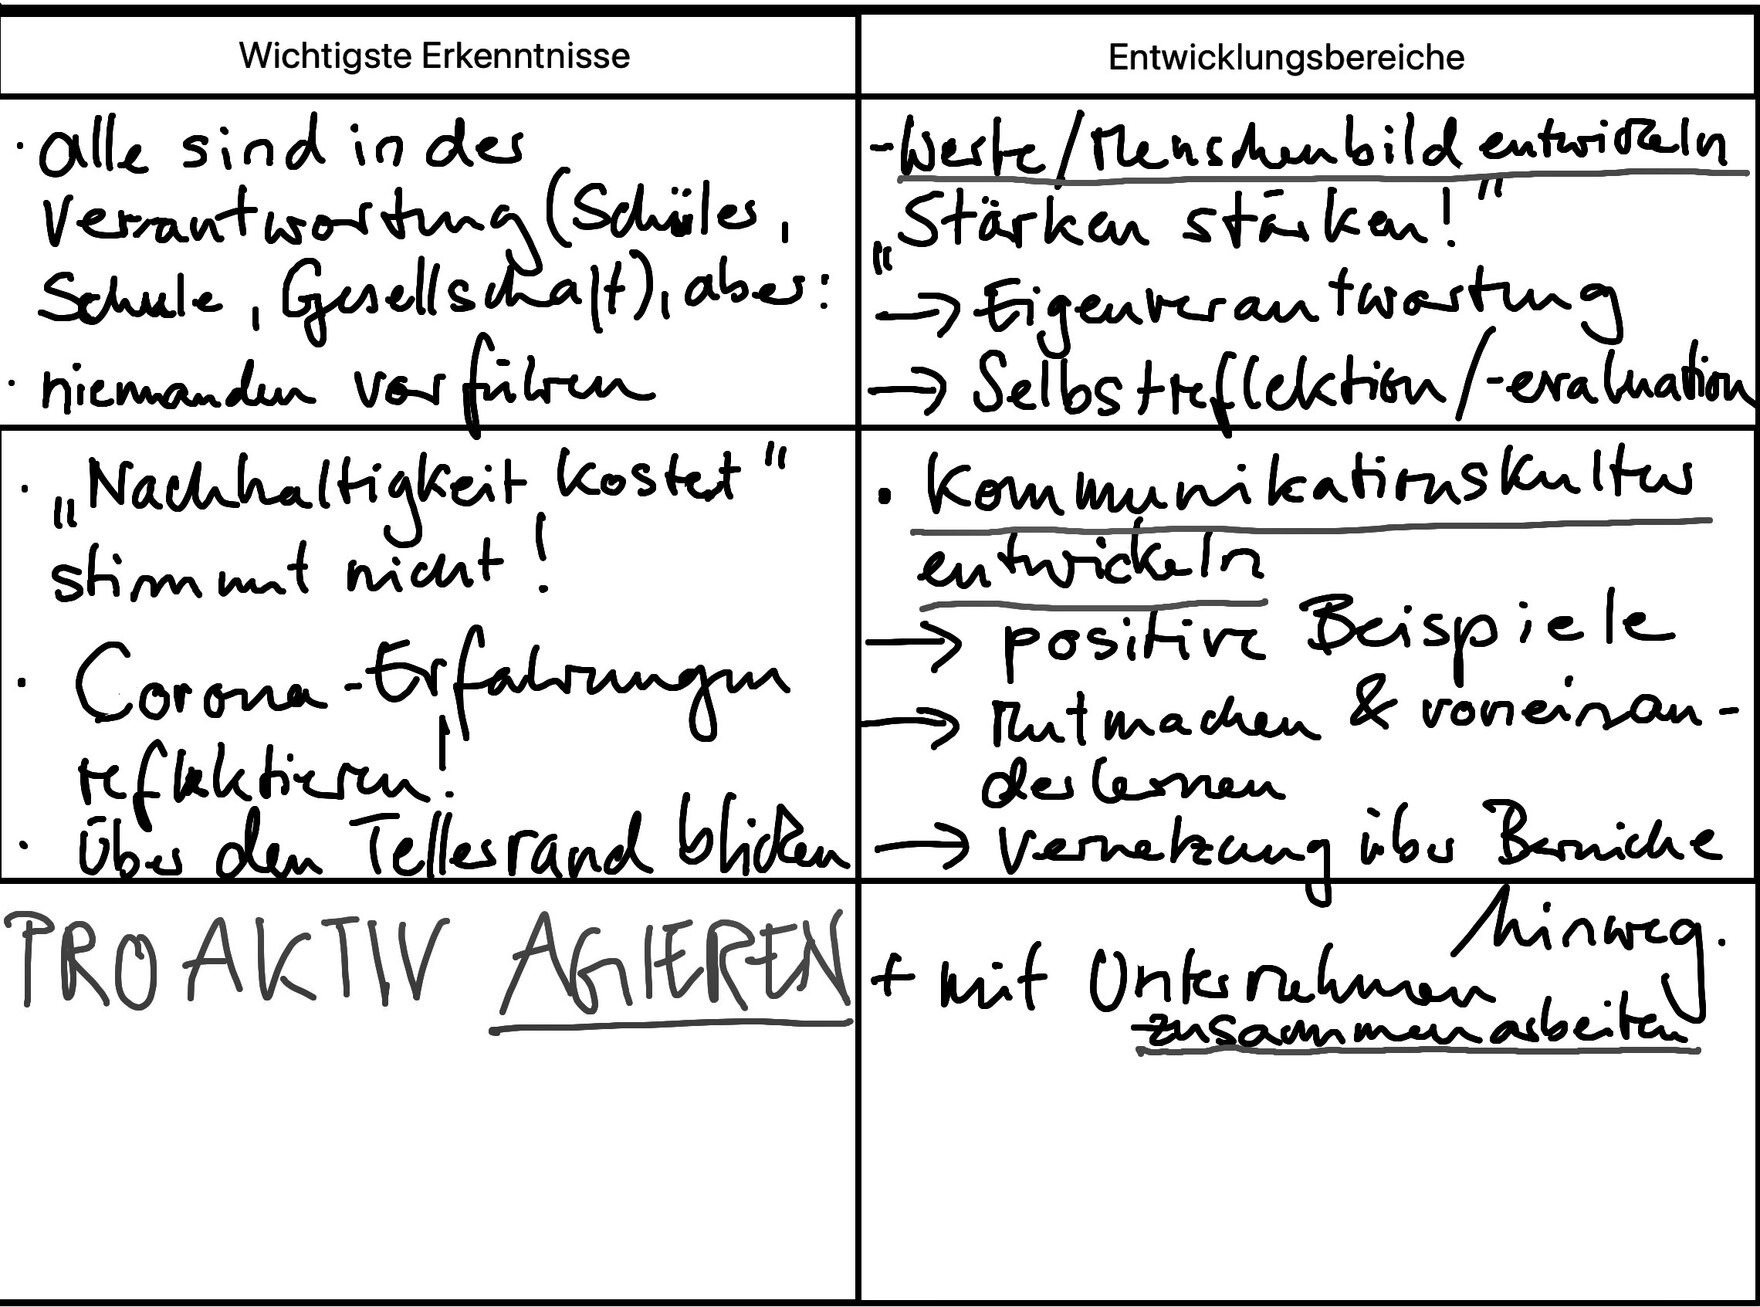 Wichtigste Erkenntnisse
Entwicklungsbereiche
· alle sind in der
Verantwortung (Schüler,
Schule, Gesellschaft), aber:
· niemanden vorführen
- Werte/Menschenbild entwickeln
„Stärken stärken!"
→ Eigenverantwortung
→ Selbstreflektion/-evaluation
· „Nachhaltigkeit kostet"
stimmt nicht!
· Corona-Erfahrungen
reflektieren!
· über den Tellerrand blicken
• Kommunikationskultur
entwickeln
→ positive Beispiele
→ Mut machen & voneinan-
der lernen
→ Vernetzung über Bereiche
hinweg.
PROAKTIV AGIEREN
+ mit Unternehmen
zusammenarbeiten